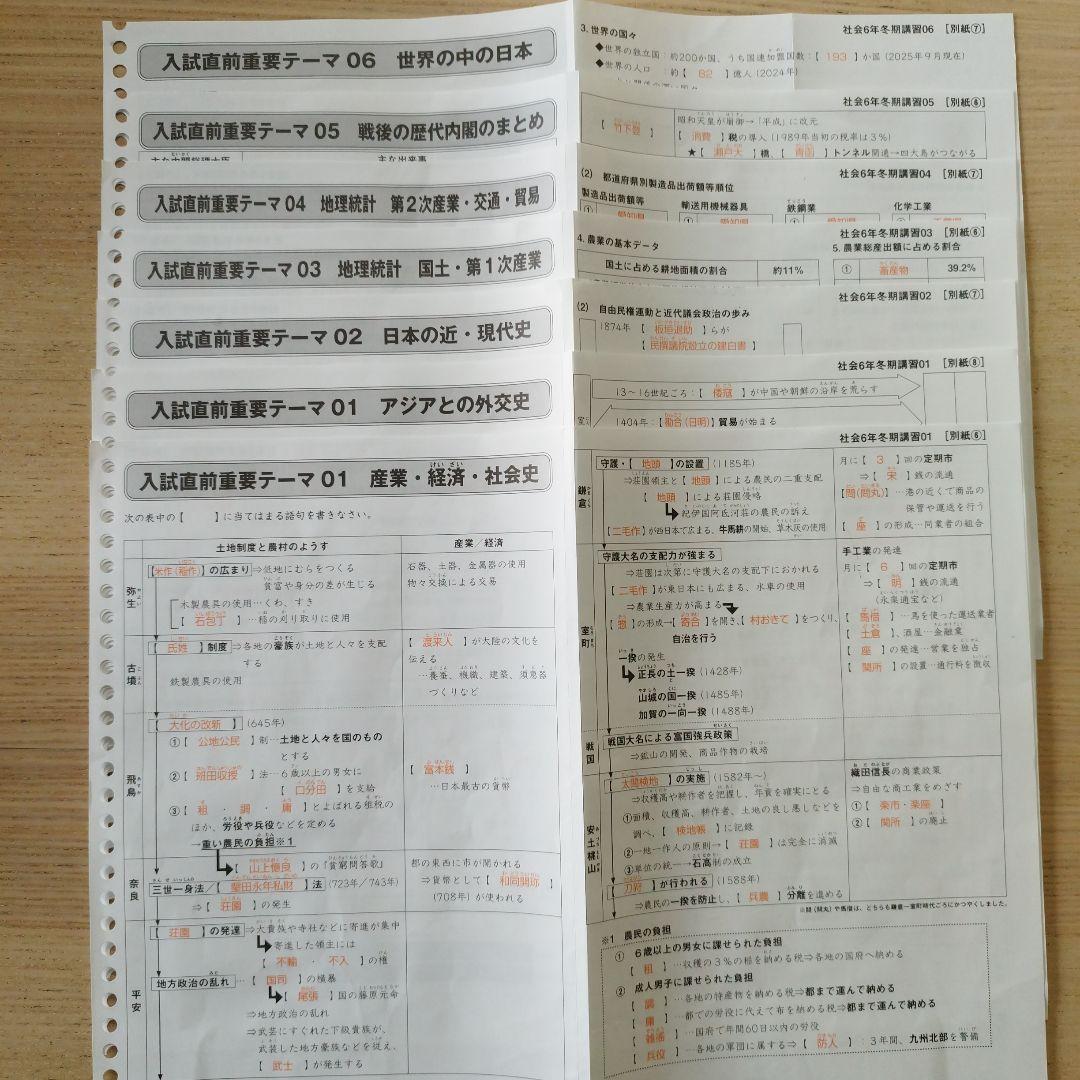 入試直前重要テーマ 06 世界の中の日本
入試直前重要テーマ 05 戦後の歴代内閣のまとめ
主な出来事
入試直前重要テーマ 04 地理統計 第2次産業・交通・貿易
入試直前重要テーマ 03 地理統計 国土・第1次産業
入試直前重要テーマ 02 日本の近・現代史
入試直前重要テーマ 01 アジアとの外交史
入試直前重要テーマ 01 産業・経済・社会史
次の表中の【 】に当てはまる語句を書きなさい。
土地制度と農村のようす
産業／経済
弥生
【米作(稲作)】の広まり⇒低地にむらをつくる
貧富や身分の差が生じる
木製農具の使用…くわ、すき
【 石包丁 】…稲の刈り取りに使用
石器、土器、金属器の使用
物々交換による交易
古墳
【 氏姓 】制度⇒各地の豪族が土地と人々を支配
する
鉄製農具の使用
【 渡来人 】が大陸の文化を
伝える
…養蚕、機織、建築、須恵器
づくりなど
飛鳥
【 大化の改新 】(645年)
①【 公地公民 】制…土地と人々を国のもの
とする
②【 班田収授 】法…6歳以上の男女に
【 口分田 】を支給
③【 租 ・ 調 ・ 庸 】とよばれる租税の
ほか、労役や兵役などを定める
→重い農民の負担※1
【 富本銭 】
…日本最古の貨幣
奈良
【 山上憶良 】の『貧窮問答歌』
三世一身法／【 墾田永年私財 】法(723年/743年)
⇒【 荘園 】の発生
都の東西に市が開かれる
⇒貨幣として【 和同開珎 】
(708年)が使われる
平安
【 荘園 】の発達⇒大貴族や寺社などに寄進が集中
寄進した領主には
【 不輸 ・ 不入 】の権
地方政治の乱れ…【 国司 】の横暴
【 尾張 】国の藤原元命
⇒地方政治の乱れ
⇒武芸にすぐれた下級貴族が、
武装した地方豪族などを従え、
【 武士 】が発生する
社会6年冬期講習06 ［別紙⑦］
3. 世界の国々
◆世界の独立国：約200か国、うち国連加盟国数：【 193 】か国(2025年9月現在)
◆世界の人口 ：約【 82 】億人(2024年)
社会6年冬期講習05 ［別紙⑥］
【 竹下登 】
昭和天皇が崩御→「平成」に改元
【 消費 】税の導入(1989年当初の税率は3％)
★【 瀬戸大 】橋、【 青函 】トンネル開通→四大島がつながる
社会6年冬期講習04 ［別紙⑦］
(2) 都道府県別製造品出荷額等順位
製造品出荷額等 輸送用機械器具 鉄鋼業 化学工業
① 愛知県 ① 愛知県 ① 愛知県 ① 千葉県
社会6年冬期講習03 ［別紙⑥］
4. 農業の基本データ
5. 農業総産出額に占める割合
国土に占める耕地面積の割合 約11％
① 畜産物 39.2％
社会6年冬期講習02 ［別紙⑦］
(2) 自由民権運動と近代議会政治の歩み
1874年【 板垣退助 】らが
【 民撰議院設立の建白書 】
社会6年冬期講習01 ［別紙⑧］
13～16世紀ごろ：【 倭寇 】が中国や朝鮮の沿岸を荒らす
1404年：【 勘合(日明) 】貿易が始まる
社会6年冬期講習01 ［別紙⑥］
鎌倉
守護・【 地頭 】の設置(1185年)
⇒荘園領主と【 地頭 】による農民の二重支配
【 地頭 】による荘園侵略
紀伊国阿氐河荘の農民の訴え
【二毛作】が西日本で広まる、牛馬耕の開始、草木灰の使用
月に【 3 】回の定期市
⇒【 宋 】銭の流通
【問(問丸)】…港の近くで商品の
保管や運送を行う
【 座 】の形成…同業者の組合
室町
守護大名の支配力が強まる
⇒荘園は次第に守護大名の支配下におかれる
【二毛作】が東日本にも広まる、水車の使用
⇒農業生産力が高まる
【 惣 】の形成⇒【 寄合 】を開き、【村おきて】をつくり、
自治を行う
一揆の発生
正長の土一揆(1428年)
山城の国一揆(1485年)
加賀の一向一揆(1488年)
手工業の発達
月に【 6 】回の定期市
⇒【 明 】銭の流通
(永楽通宝など)
【 馬借 】…馬を使った運送業者
【 土倉 】、酒屋…金融業
【 座 】の発達…営業を独占
【 関所 】の設置…通行料を徴収
戦国
戦国大名による富国強兵政策
⇒鉱山の開発、商品作物の栽培
安土桃山
【太閤検地】の実施 (1582年～)
⇒収穫高や耕作者を把握し、年貢を確実にとる
①面積、収穫高、耕作者、土地の良し悪しなどを
調べ、【 検地帳 】に記録
②一地一作人の原則→【 荘園 】は完全に消滅
③単位の統一→石高制の成立
【 刀狩 】が行われる(1588年)
⇒農民の一揆を防止し、【 兵農 】分離を進める
織田信長の商業政策
⇒自由な商工業をめざす
①【 楽市・楽座 】
②【 関所 】の廃止
※問(問丸)や馬借は、どちらも鎌倉～室町時代ごろにかつやくしました。
※1 農民の負担
① 6歳以上の男女に課せられた負担
【 租 】…収穫の3％の稲を納める税⇒各地の国府へ納める
② 成人男子に課せられた負担
【 調 】…各地の特産物を納める税⇒都まで運んで納める
【 庸 】…都での労役に代えて布を納める税⇒都まで運んで納める
【 雑徭 】…国府で年間60日以内の労役
【 兵役 】…各地の軍団に属する⇒【 防人 】：3年間、九州北部を警備